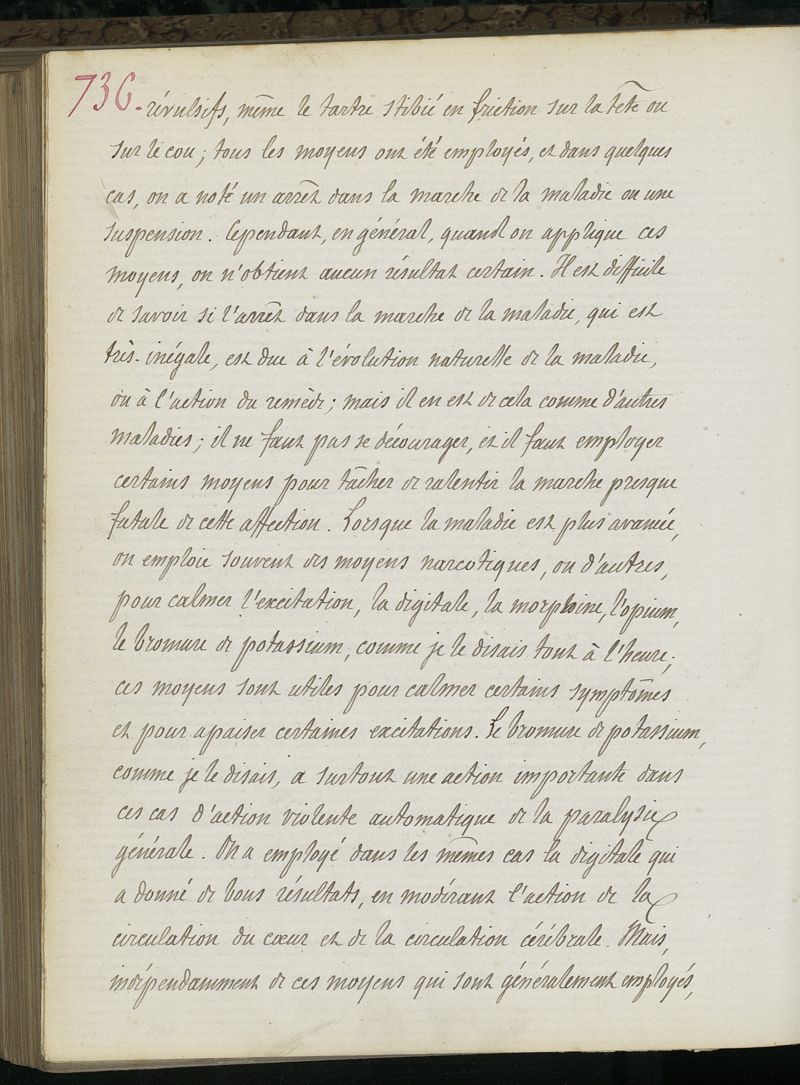 736.
révulsifs, même le tartre stibié en friction sur la tête ou
sur le cou; tous les moyens ont été employés, et dans quelques
cas, on a noté un arrêt dans la marche de la maladie ou une
suspension. Cependant, en général, quand on applique ces
moyens, on n'obtient aucun résultat certain. Il est difficile
de savoir si l'arrêt dans la marche de la maladie, qui est
très-inégale, est due à l'évolution naturelle de la maladie,
ou à l'action du remède; mais il en est de cela comme d'autres
maladies; il ne faut pas se décourager, et il faut employer
certains moyens pour tâcher de ralentir la marche presque
fatale de cette affection. Lorsque la maladie est plus avancée,
on emploie souvent des moyens narcotiques, ou d'autres,
pour calmer l'excitation, la digitale, la morphine, l'opium,
le bromure de potassium, comme je le disais tout à l'heure;
ces moyens sont utiles pour calmer certains symptômes
et pour apaiser certaines excitations. Le bromure de potassium,
comme je le disais, a surtout une action importante dans
ces cas d'action violente automatique de la paralysie
générale. On a employé dans les mêmes cas la digitale qui
a donné de bons résultats, en modérant l'action de la
circulation du cœur et de la circulation cérébrale. Mais,
indépendamment de ces moyens qui sont généralement employés,